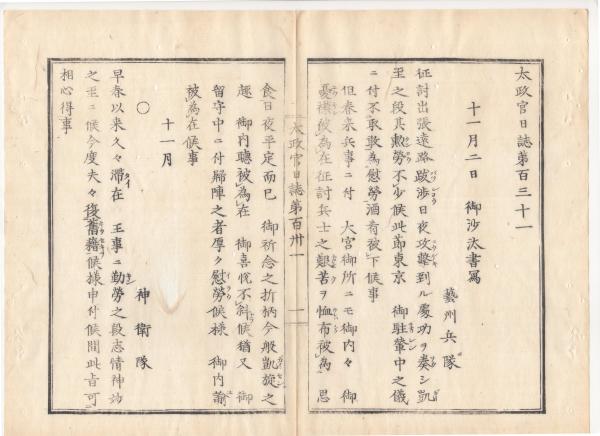 太政官日誌第百三十一
十一月二日 御沙汰書寫
藝州兵隊
征討出張遠路跋渉日夜攻擊到ル處功ヲ奏シ凱
至之段其勲勞不少候此節東京 御駐輦中之儀
ニ付不取敢為慰勞酒肴被下候事
但春来兵事ニ付 大宮御所ニモ御内々 御
憂襟被為在征討兵士之艱苦ヲ恤布被為 思
太政官日誌第百卅一 一
食日夜平定而已 御祈念之折柄今般凱旋之
趣 御内聽被為在 御喜悦不斜候猶又 御
留守中ニ付歸陣之者厚ク慰勞候様 御内諭
被為在候事
十一月
○ 神衛隊
早春以来久々滞在 王事ニ勤勞之段志情神妙
之至ニ候今度夫々復舊籍候様申付候間此旨可
相心得事